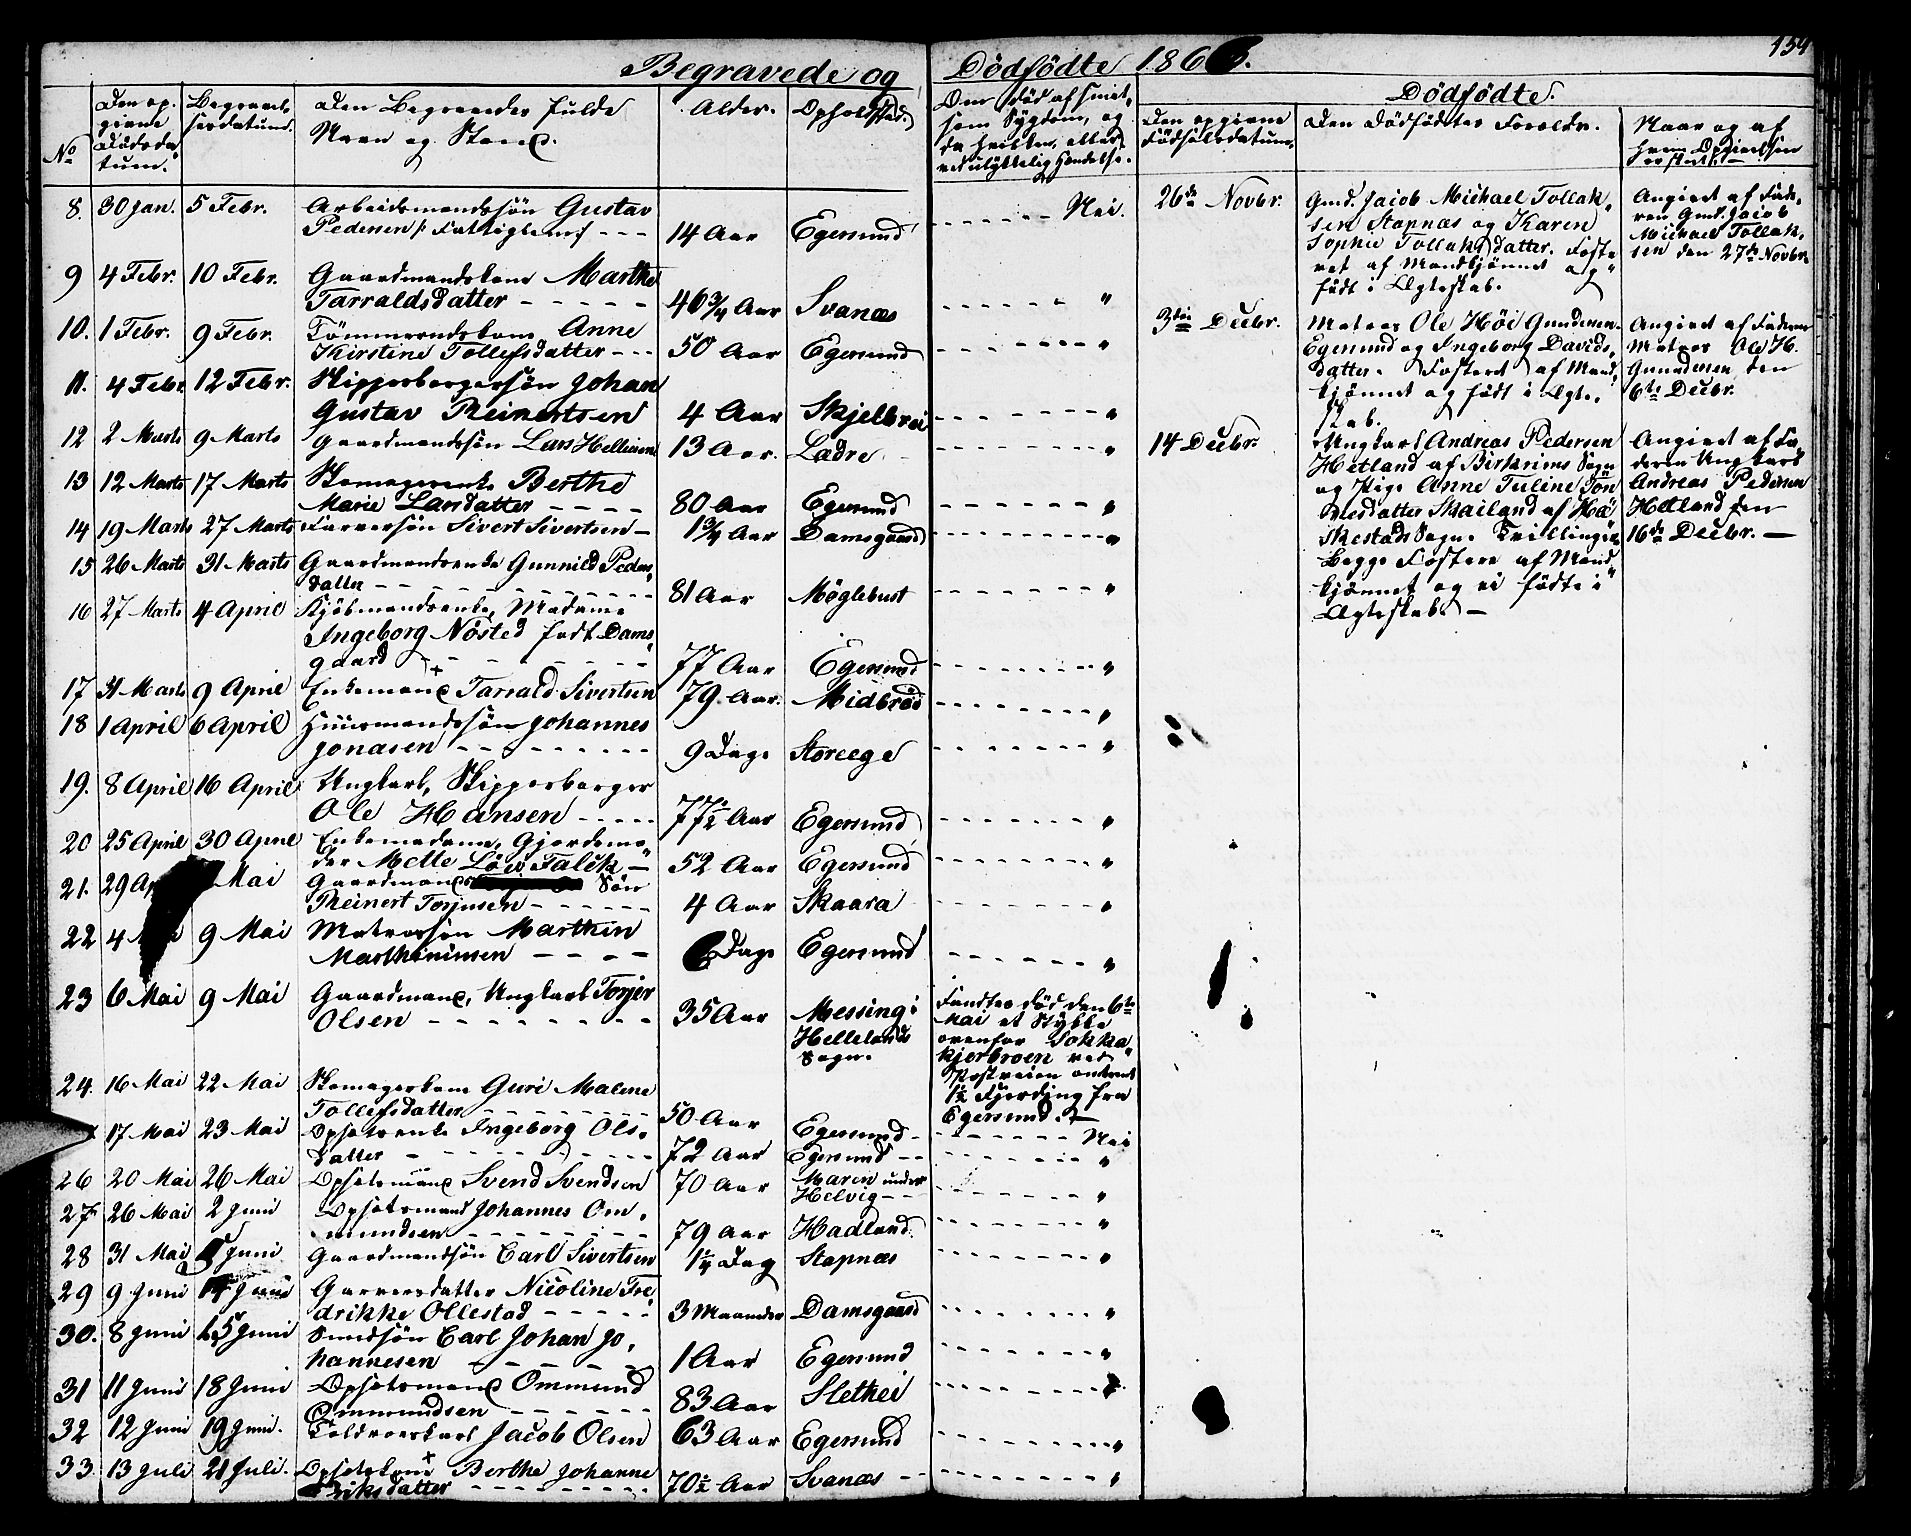 Begravede og Dödfödte 1863.
154
No
Den op-
givne
Dödsda-
tum.
Begravel-
sesdatum.
Den Begravedes fulde
Navn og Stand.
Alder.
Opholdsted.
Om död af smit-
som Sygdom, og
da hvilken, eller
ved ulykkelig Hændelse.
Dödfödte.
Den opgivne
Födselsdatum.
Den Dödfödtes Forældre.
Naar og af
hvem Opgivelsen
er skeet.
8. 30 Jan. 5 Febr. Arbeidsmandssön Gustav
Pedersen /: Fattiglem :/ 14 Aar Egersund Nei.
9 4 Febr. 10 Febr. Gaardmandskone Marthe
Tarraldsdatter 46 3/4 Aar Svanæs "
10. 1 Febr. 9 Febr. Tömmermandskone Anne
Kirstine Tollefsdatter 50 Aar Egersund "
11. 4 Febr. 12 Febr. Skipperborgersön Johan
Gustav Reinertsen 4 Aar Skjelbrei "
12 2 Marts 9 Marts Gaardmandssön Lars Helliesen 13 Aar. Lædre "
13 12 Marts 17 Marts Skomagerenke Berthe
Marie Larsdatter 80 Aar Egersund "
14 19 Marts 27 Marts Farversön Sivert Sivertsen 1 3/4 Aar Damsgaard "
15 26 Marts 31 Marts Gaardmandsenke Gunnild Peders-
datter 81 Aar Möglebust "
16 27 Marts 4 April Kjöbmandsenke, Madame
Ingeborg Nösted født Dams-
gaard 77 Aar Egersund "
17 31 Marts 9 April Enkemand Tarrald Sivertsen 79 Aar. Midbröd "
18 1 April 6 April Huusmandssön Johannes
Jonasen 9 Dage Storeege "
19. 8 April 16 April Ungkarl, Skipperborger
Ole Hansen 77 1/2 Aar Egersund "
20 25 April 30 April Enkemadame, Gjordemo-
der Mette Löv Falck 52 Aar Egersund "
21. 29 Mai Gaardmands Sön
Reinert Torjusen 4 Aar Skaara "
22 4 Mai 9 Mai Matrossön Marthin
Marthiniusen 6 Dage Egersund "
23 6 Mai 9 Mai Gaardmand, Ungkarl Torjer
Olsen 35 Aar Messing i
Hellelands
Sogn.
Fandtes död den 6te
Mai et Stykke
ovenfor Sokka-
kjerbroen ved
Postveien omtrent
1 1/2 Fjerding fra
Egersund.
24. 16 Mai 22 Mai Skomagerkone Guri Malene
Tollefsdatter 50 Aar Egersund Nei
17 Mai 23 Mai Opsidderenke Ingeborg Ols-
datter 72 Aar Egersund "
26 20 Mai 26 Mai Opsidersmand Svend Svendsen 70 Aar Maren under
Helvig "
27 26 Mai 2 Juni Opsidersmand Johannes Om-
mundsen 79 Aar Hadland "
28 31 Mai Juni Gaardmandssön Carl Sivertsen 1/4 Dag Stapnæs "
29 9 Juni 14 Juni Garversdatter Nicoline Fre-
drikke Ollestad 3 Maaneder Damsgaard "
30. 8 Juni 15 Juni Smedsön Carl Johan Jo-
hannesen 1 Aar Egersund "
31 11 Juni 18 Juni Opsidersmand Ommund
Ommundsen 83 Aar Slethei "
32 12 Juni 19 Juni. Toldroerskarl Jacob Olsen 63 Aar Egersund "
33 13 Juli 21 Juli. Berthe Johanne
Eriksdatter 70 1/2 Aar Svanæs "
26de Novbr.
Gmd. Jacob Michael Tollak-
sen Stapnæs og Karen
Sophie Tollaksdatter. Foste-
ret af Mandkjönnet og
födt i Ægteskab.
Angivet af Fade-
ren Gmd. Jacob
Michael Tollak-
sen den 27de Novbr
3die Decbr.
Matros Ole Höi Gundersen
Egersund og Ingeborg Davids-
datter. Fosteret af Mand-
kjönnet og födt i Ægte-
skab.
Angivet af Faderen
Matros Ole H.
Gundersen den
6te Decbr.
14 Decbr.
Ungkarl Andreas Pedersen
Hetland af Birkrims Sogn
og Pige Anne Tuline Tön-
nesdatter Skailand af Hä-
skestads Sogn. Tvillinger,
Begge Fostere af Mand-
kjönnet og ei födte i
Ægteskab.
Angivet af Fa-
deren Ungkarl
Andreas Pedersen
Hetland den
16de Decbr.